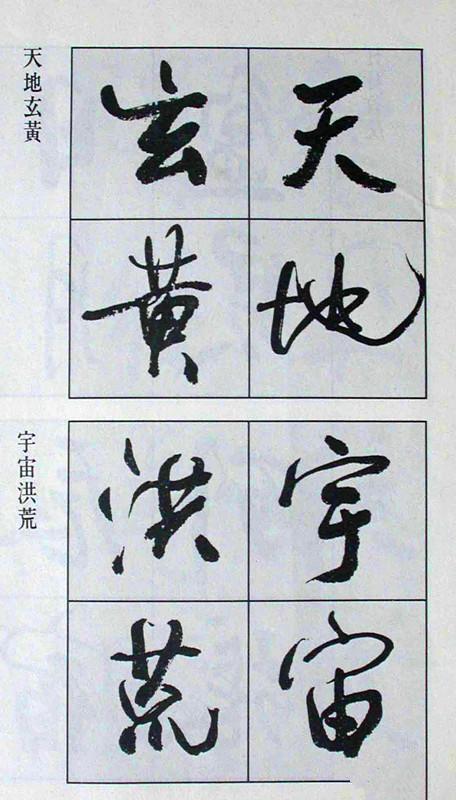 天地
玄黄
天地玄黃
宇宙
洪荒
宇宙洪荒